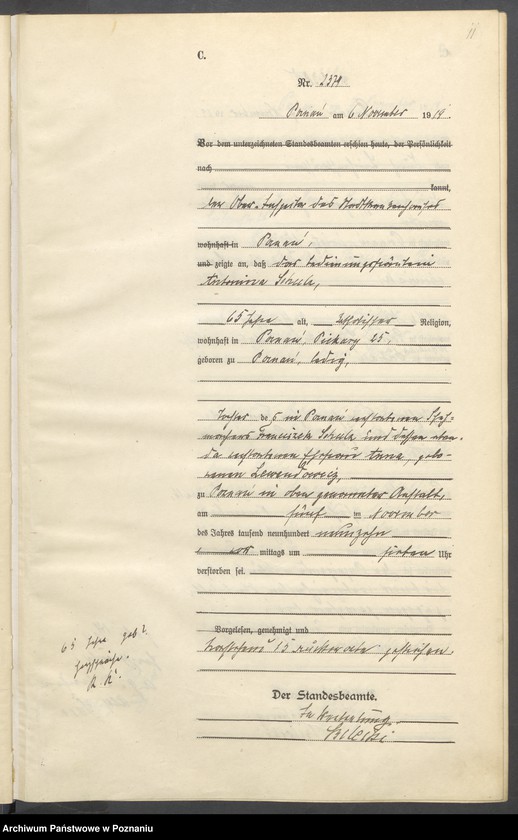 11
C.
Nr. 2379
Posen am 6 November 1919.
Vor dem unterzeichneten Standesbeamten erschien heute, der Persönlichkeit
nach
kannt,
der Ober-Inspektor des Stadtkrankenhauses
wohnhaft in Posen,
und zeigte an, daß das Bedienungsfräulein
Antonina
65 Jahre alt, katholischer Religion,
wohnhaft in Posen, Piekary 25.
geboren zu Posen, ledig,
Tochter des in Posen verstorbenen
und dessen eben-
da verstorbenen Ehefrau Anna, gebo-
renen
zu Posen in oben genannter Anstalt,
am fünf ten November
des Jahres tausend neunhundert neunzehn
mittags um sieben Uhr
verstorben sei.
Vorgelesen, genehmigt und
Vorstehend 15 Druckworte gestrichen.
Der Standesbeamte.
In Vertretung.
65 Jahre
Archiwum Państwowe w Poznaniu